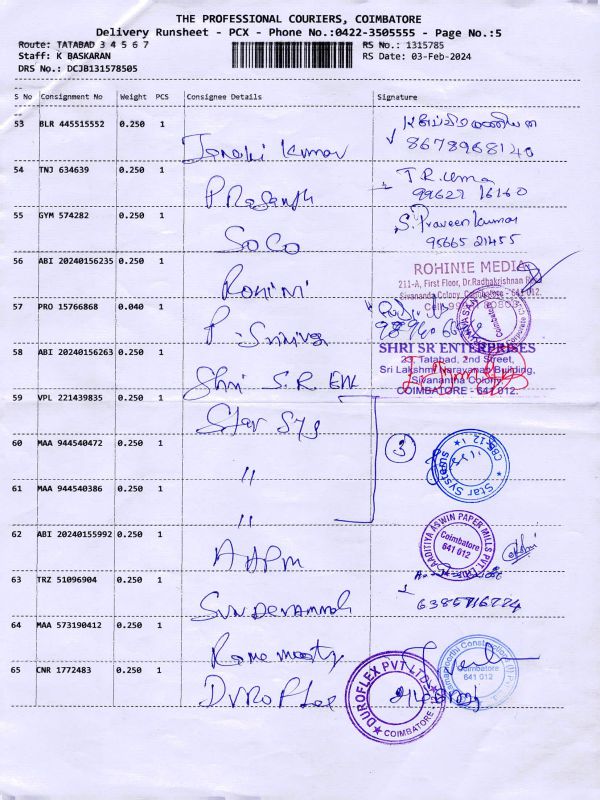 THE PROFESSIONAL COURIERS, COIMBATORE
Delivery Runsheet - PCX - Phone No.:0422-3505555 - Page No.:5
Route: TATABAD 3 4 5 6 7
RS No.: 1315785
Staff: K BASKARAN
RS Date: 03-Feb-2024
DRS No.: DCJB131578505
S No Consignment No Weight PCS Consignee Details Signature
53 BLR 445515552 0.250 1
Janaki Kumar
8678968140
54 TNJ 634639 0.250 1
Prasanth
T.R. Uma
99627 16160
55 GYM 574282 0.250 1
SoCo
S. Praveen Kumar
95665 21455
56 ABI 20240156235 0.250 1
Rohini
ROHINIE MEDIA
211-A, First Floor, Dr.Radhakrishnan Road
Sivananda Colony, Coimbatore - 641 012.
57 PRO 15766868 0.040 1
P. Srinivas
Coimbatore
58 ABI 20240156263 0.250 1
Shri S.R. Ent
SHRI SR ENTERPRISES
23, Tatabad, 2nd Street,
Sri Lakshmi Narayanan Building,
Sivanantha Colony,
COIMBATORE - 641 012.
59 VPL 221439835 0.250 1
Star Sys
60 MAA 944540472 0.250 1
"
3
Star Systems
CBE-12
61 MAA 944540386 0.250 1
"
62 ABI 20240155992 0.250 1
AAPM
AADITIYA ASWIN PAPER MILLS PVT. LTD.
Coimbatore
641 012
63 TRZ 51096904 0.250 1
Sundarammal
6385716224
64 MAA 573190412 0.250 1
Ramamoorthy
Coimbatore
641 012
65 CNR 1772483 0.250 1
Duroflex
DUROFLEX PVT LTD
COIMBATORE